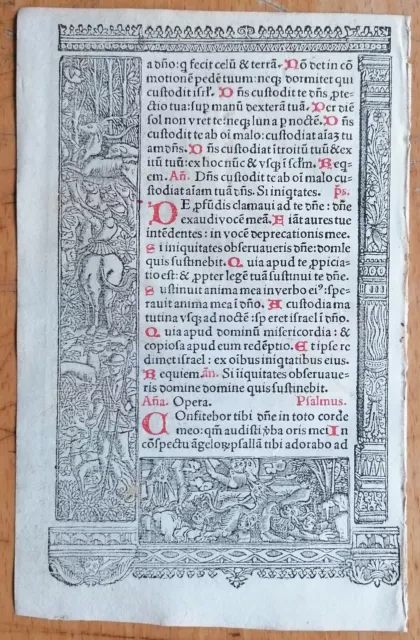 a dño: q̃ fecit celũ & terrã. Nõ det in cõ
motionẽ pedẽ tuum: neq; dormitet qui
custodit te isr̃l. Dñs custodit te dñs p̃te-
ctio tua: sup manũ dexterã tuã. Per diẽ
sol non vret te: neq; luna p noctẽ. Dñs
custodit te ab oĩ malo: custodiat aĩaʒ tu
am dñs. Dñs custodiat ĩtroitũ tuũ & ex
itũ tuũ: ex hoc nũc & vsq; ĩ sc̃lm. Req
em. Añ. Dñs custodit te ab oĩ malo cu-
stodiat aĩam tuã dñs. Si iniq̃tates. ps̃.
DE ꝓfũdis clamaui ad te dñe: dñe
exaudi vocẽ meã. Fiãt aures tue
intẽdentes: in vocẽ deprecationis mee.
Si iniquitates obseruaueris dñe: domĩe
quis sustinebit. Quia apud te ꝓpicia
tio est: & ꝓpter legẽ tuã sustinui te dñe.
Sustinuit anima mea in verbo ei⁹: spe-
rauit anima mea ĩ dño. A custodia ma
tutina vsq̃ ad noctẽ: speret israel ĩ dño.
Quia apud dominũ misericordia: &
copiosa apud eum redẽptio. Et ipse re
dimet israel: ex oĩbus iniq̃tatibus eius.
Requiem. añ. Si iĩquitates obseruaue-
ris domine domine quis sustinebit.
Aña. Opera. Psalmus.
Confitebor tibi dñe in toto corde
meo: qm̃ audisti ṽba oris mei In
cõspectu ãgeloꝝ psallã tibi adorabo ad